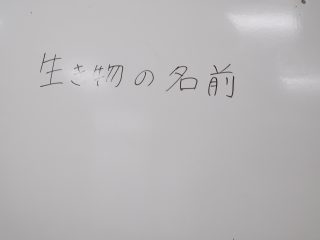 生き物の名前